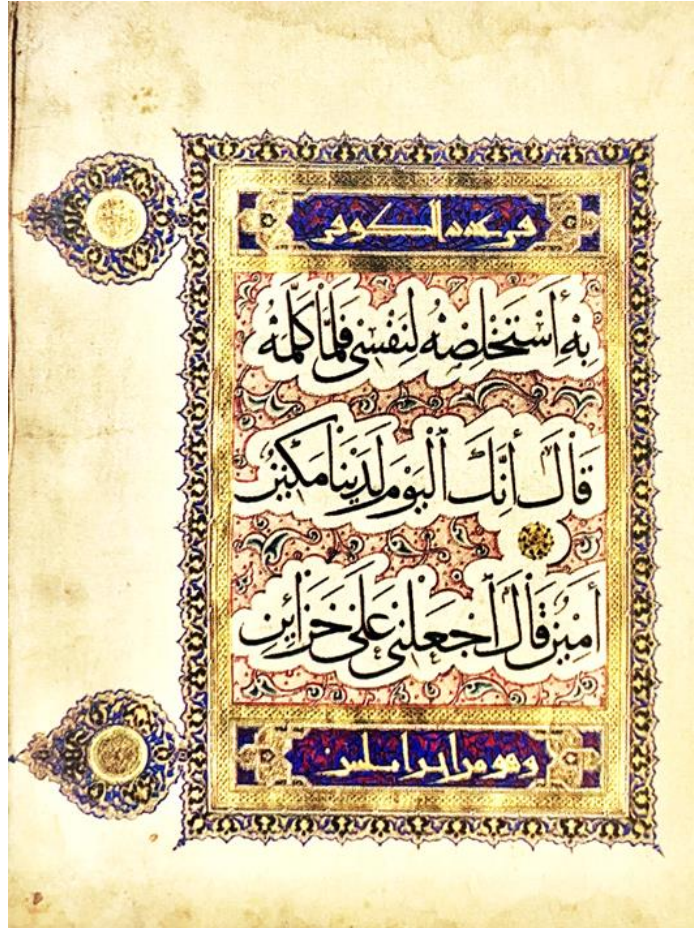 في عدد الكوفي
بِهِۦٓ أَسْتَخْلِصْهُ لِنَفْسِى فَلَمَّا كَلَّمَهُۥ
قَالَ إِنَّكَ ٱلْيَوْمَ لَدَيْنَا مَكِينٌ
أَمِينٌ قَالَ ٱجْعَلْنِى عَلَىٰ خَزَآئِنِ